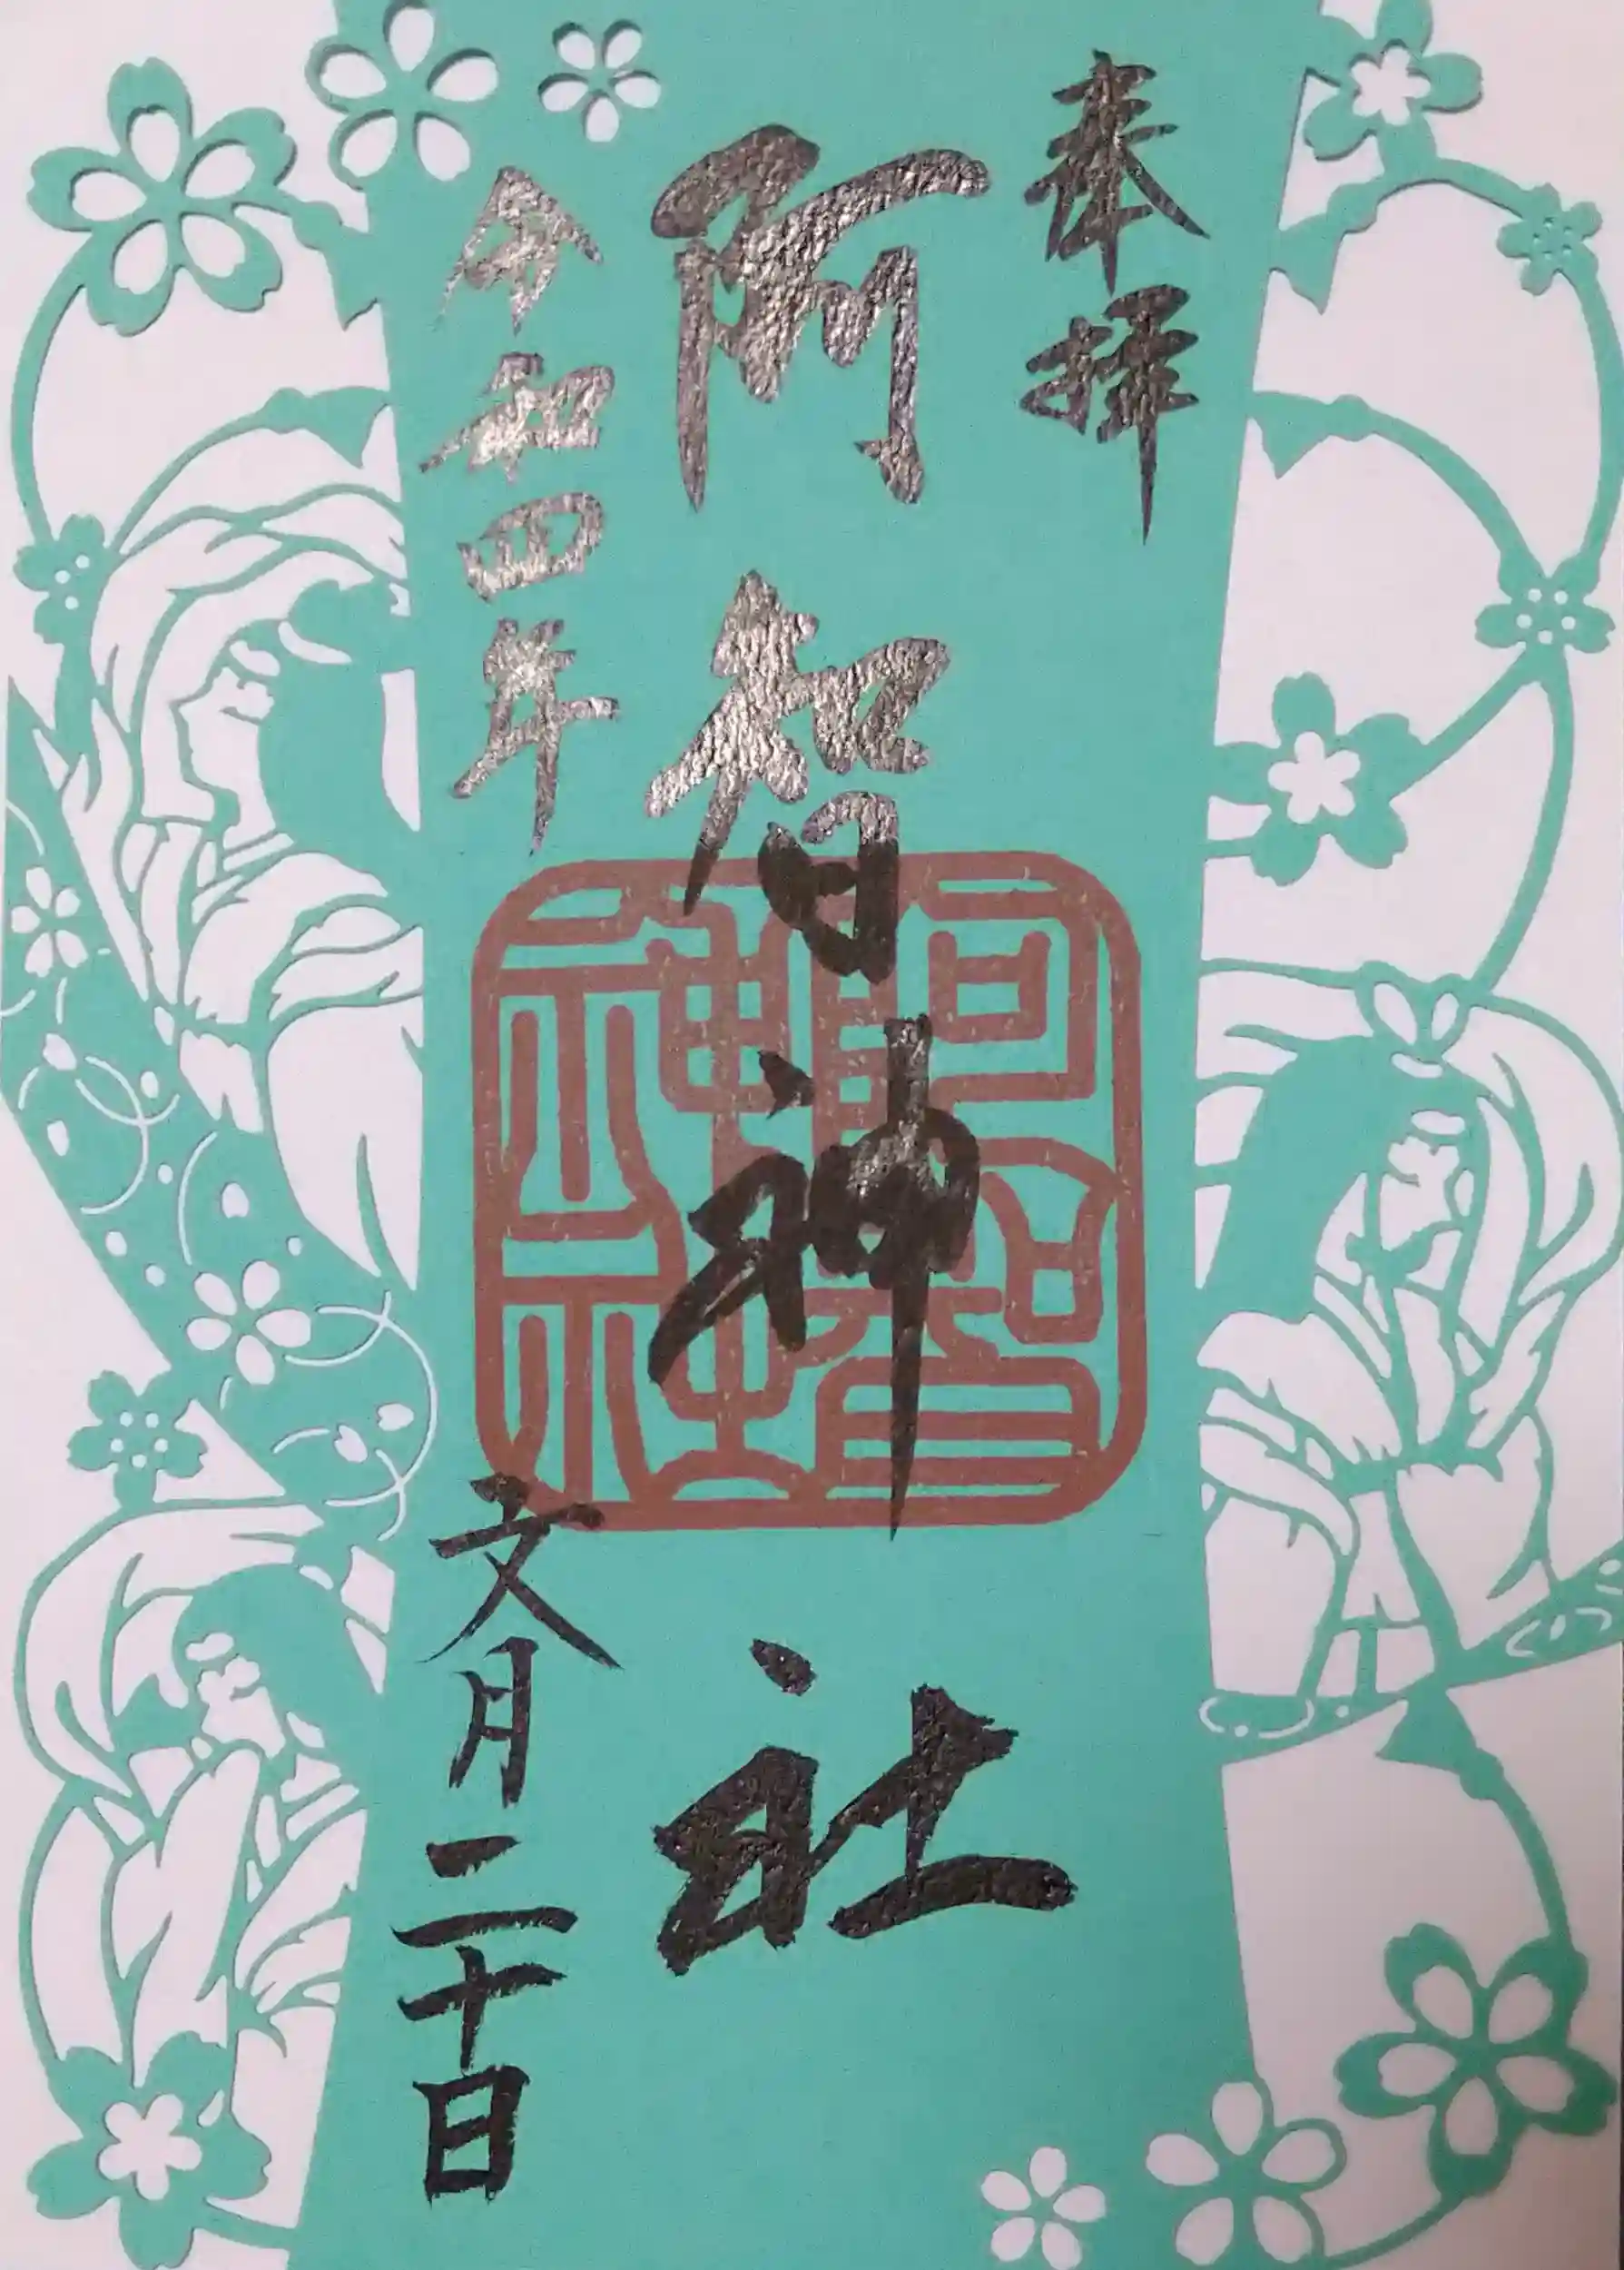 奉拝
阿智神社
令和四年
文月二十日
阿智神社